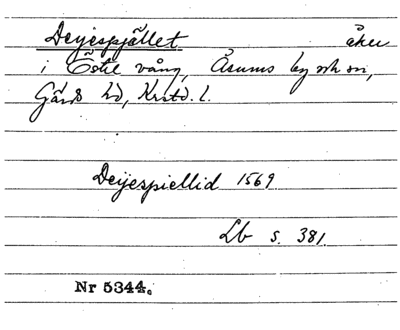 Deijespjället åker
i Östel vång, Åsums by och sn,
Gärds hd, Krstd. l.
Deijespiellid 1569
Lb s. 381.
Nr 5344.